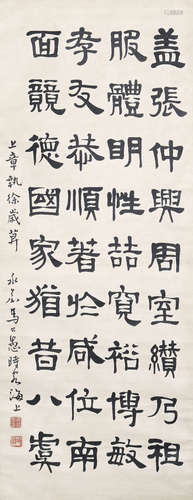 盖張仲興周室纘乃祖
服體明性喆寬裕博敏
孝友恭順著於咸位南
面競德國家猶昔八虞
上章執徐歲 永嘉馬公愚時客海上